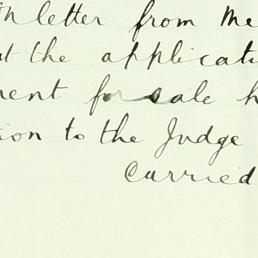 letter from Me
t the applicati
ment for sale h
ion to the Judge
Carried